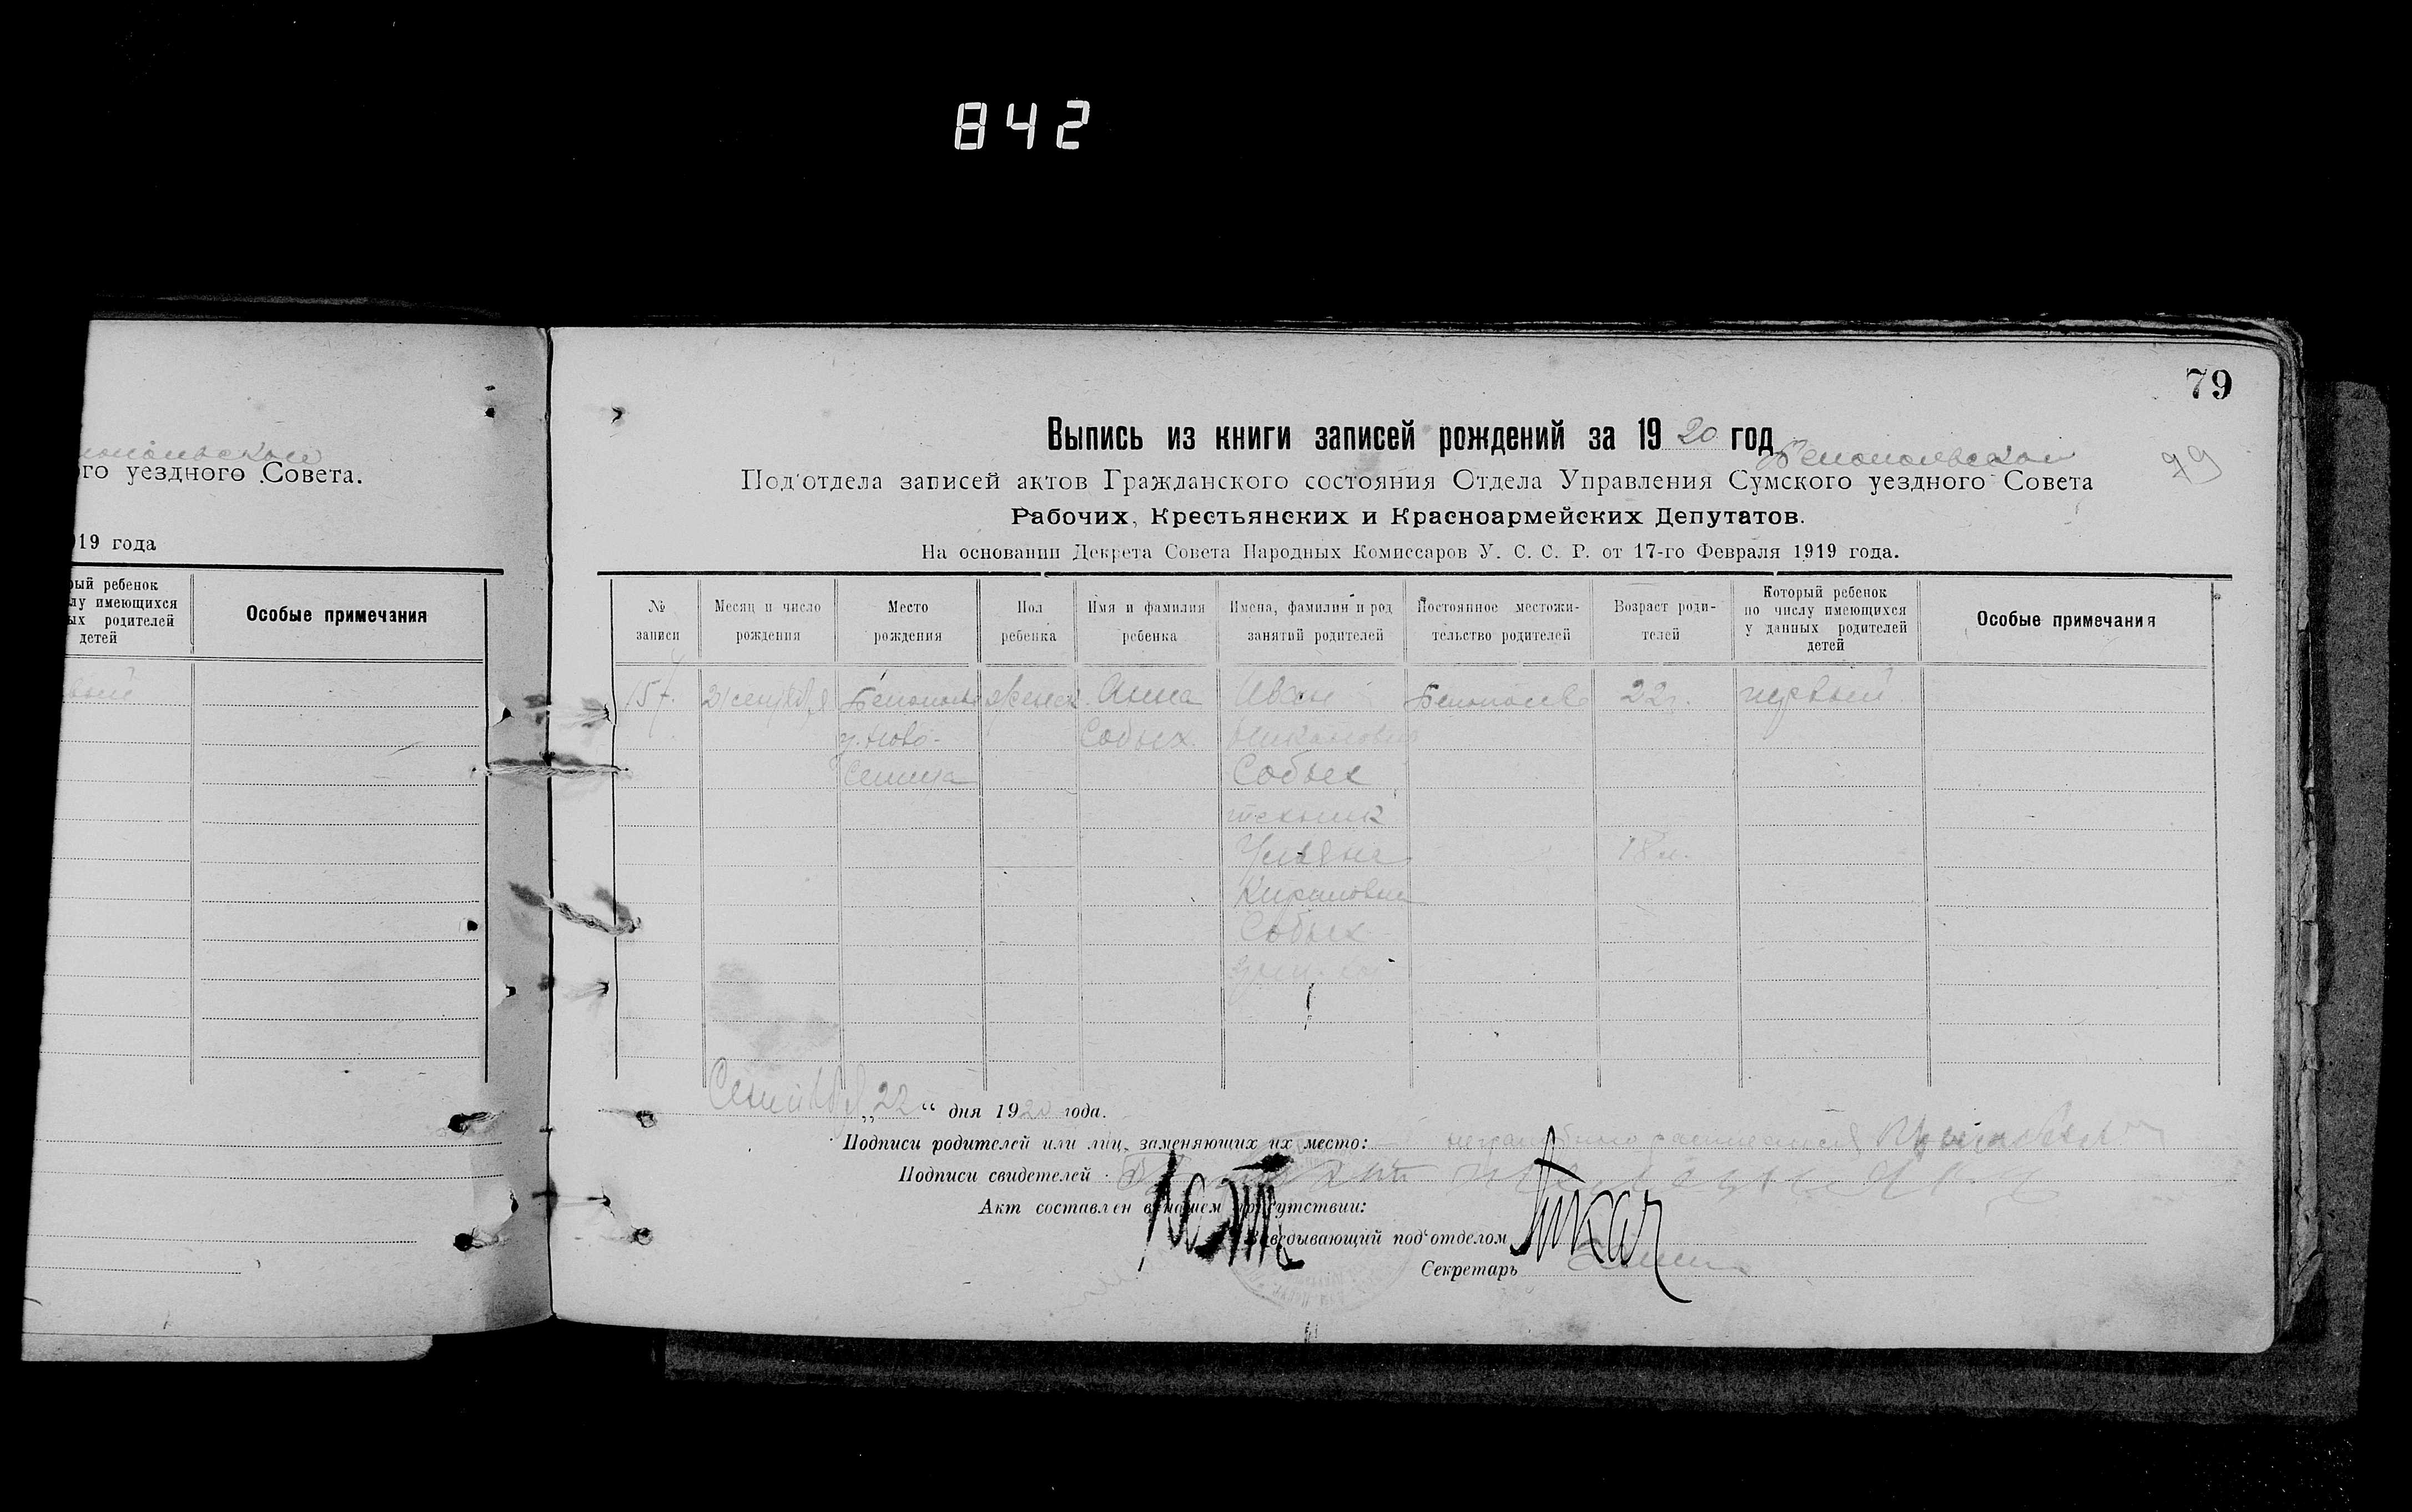 842
79
79
Белопольской
го уездного Совета.
19 года
рый ребенок
лу имеющихся
ых родителей
детей
Особые примечания
Выпись из книги записей рождений за 1920 год
Белопольской
Под'отдела записей актов Гражданского состояния Отдела Управления Сумского уездного Совета
Рабочих, Крестьянских и Красноармейских Депутатов.
На основании Декрета Совета Народных Комиссаров У. С. С. Р. от 17-го Февраля 1919 года.
№ записи
Месяц и число рождения
Место рождения
Пол ребенка
Имя и фамилия ребенка
Имена, фамилии и род занятий родителей
Постоянное местожительство родителей
Возраст родителей
Который ребенок по числу имеющихся у данных родителей детей
Особые примечания
157. 21 сентября Белополье женск. Анна Иван Белополье 22г. первый
Собых
Собых
техник
Ульяна 18л.
Кириловна
Собых
Сентября „22“ дня 1920 года.
Подписи родителей или лиц, заменяющих их место:
Подписи свидетелей
Акт составлен в нашем присутствии:
Заведывающий под'отделом
Секретарь